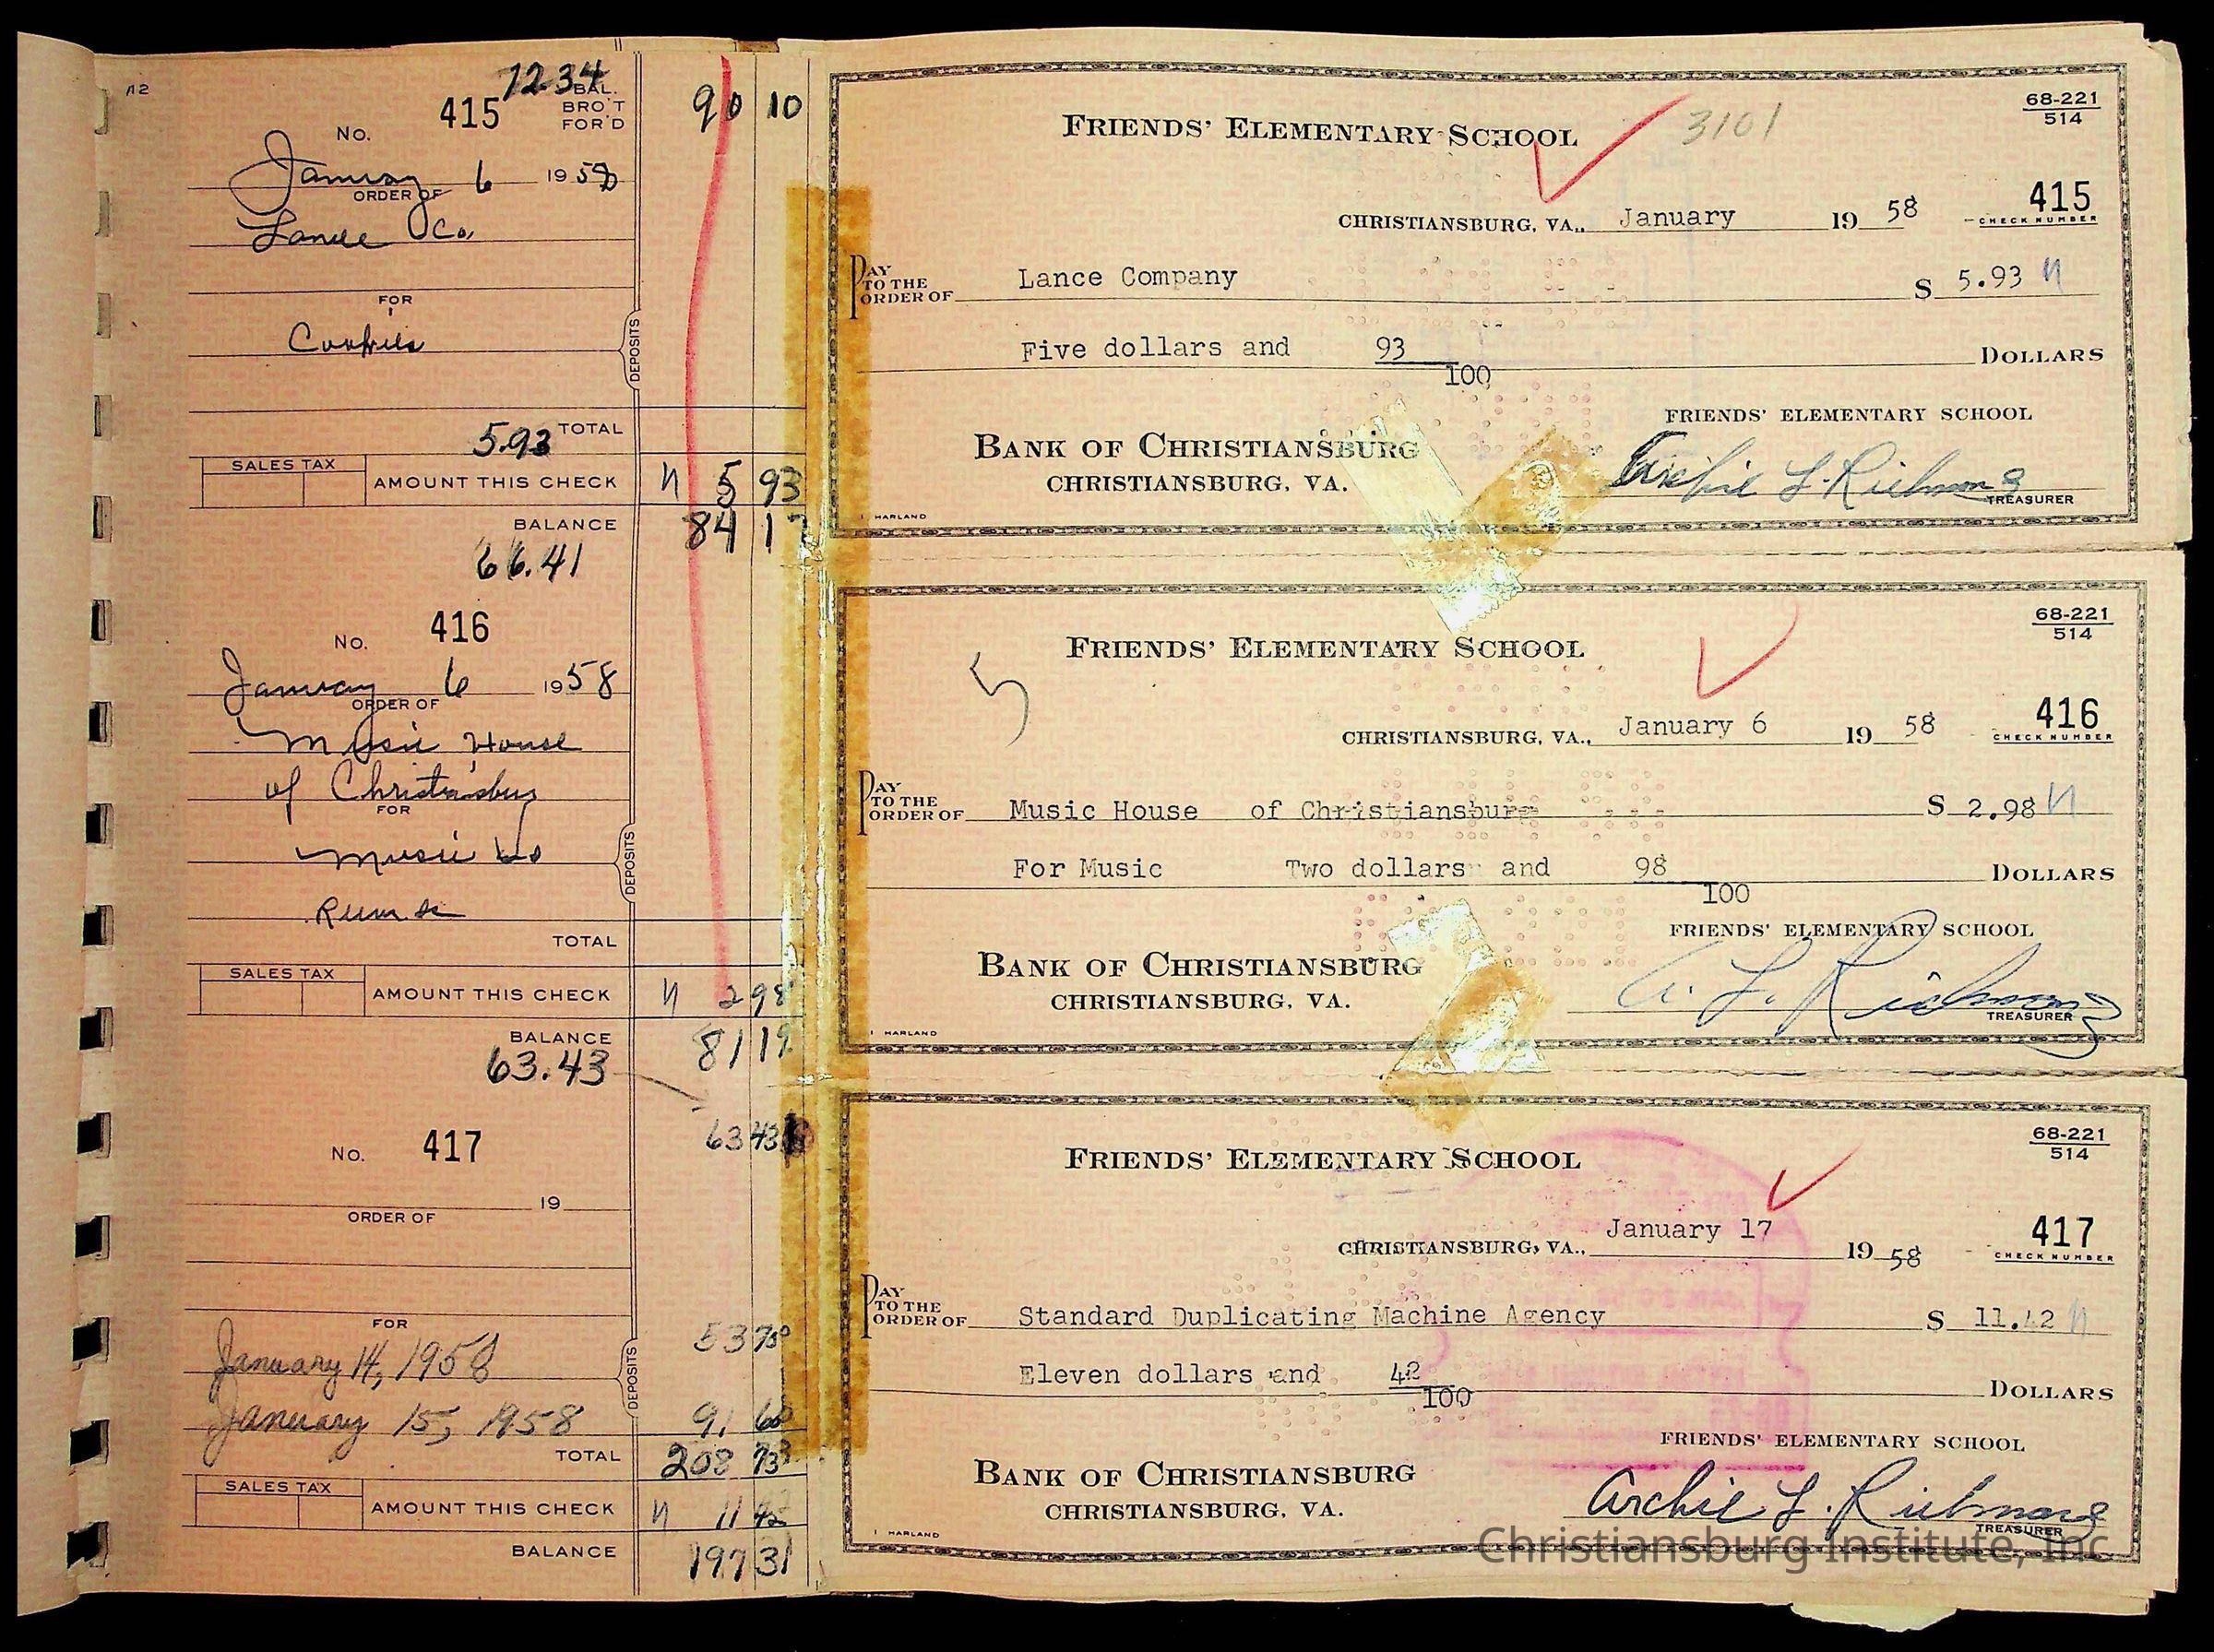 12
72.34
No. 415
BAL. BRO'T FOR'D
90 10
January 6 19 58
ORDER OF
Lance Co.
FOR
Cookies
DEPOSITS
TOTAL
5.93
SALES TAX
AMOUNT THIS CHECK
5 93
BALANCE
84 17
66.41
No. 416
January 6 19 58
ORDER OF
Music House
of Christiansburg
FOR
Music
DEPOSITS
TOTAL
SALES TAX
AMOUNT THIS CHECK
2 98
BALANCE
81 19
63.43
63 43
No. 417
19
ORDER OF
FOR
53 70
January 14, 1958
DEPOSITS
January 15, 1958
91 60
TOTAL
208 73
SALES TAX
AMOUNT THIS CHECK
11 42
BALANCE
197 31
FRIENDS' ELEMENTARY SCHOOL
3101
68-221
514
CHRISTIANSBURG, VA., January 19 58
415
CHECK NUMBER
PAY TO THE ORDER OF Lance Company $ 5.93
Five dollars and 93/100 DOLLARS
FRIENDS' ELEMENTARY SCHOOL
BANK OF CHRISTIANSBURG
CHRISTIANSBURG, VA.
Archie L. Richmond
TREASURER
HARLAND
FRIENDS' ELEMENTARY SCHOOL
5
68-221
514
CHRISTIANSBURG, VA., January 6 19 58
416
CHECK NUMBER
PAY TO THE ORDER OF Music House of Christiansburg $ 2.98
For Music Two dollars and 98/100 DOLLARS
FRIENDS' ELEMENTARY SCHOOL
BANK OF CHRISTIANSBURG
CHRISTIANSBURG, VA.
A. L. Richmond
TREASURER
HARLAND
FRIENDS' ELEMENTARY SCHOOL
68-221
514
CHRISTIANSBURG, VA., January 17 19 58
417
CHECK NUMBER
PAY TO THE ORDER OF Standard Duplicating Machine Agency $ 11.42
Eleven dollars and 42/100 DOLLARS
FRIENDS' ELEMENTARY SCHOOL
BANK OF CHRISTIANSBURG
CHRISTIANSBURG, VA.
Archie L. Richmond
TREASURER
HARLAND
Christiansburg Institute, Inc